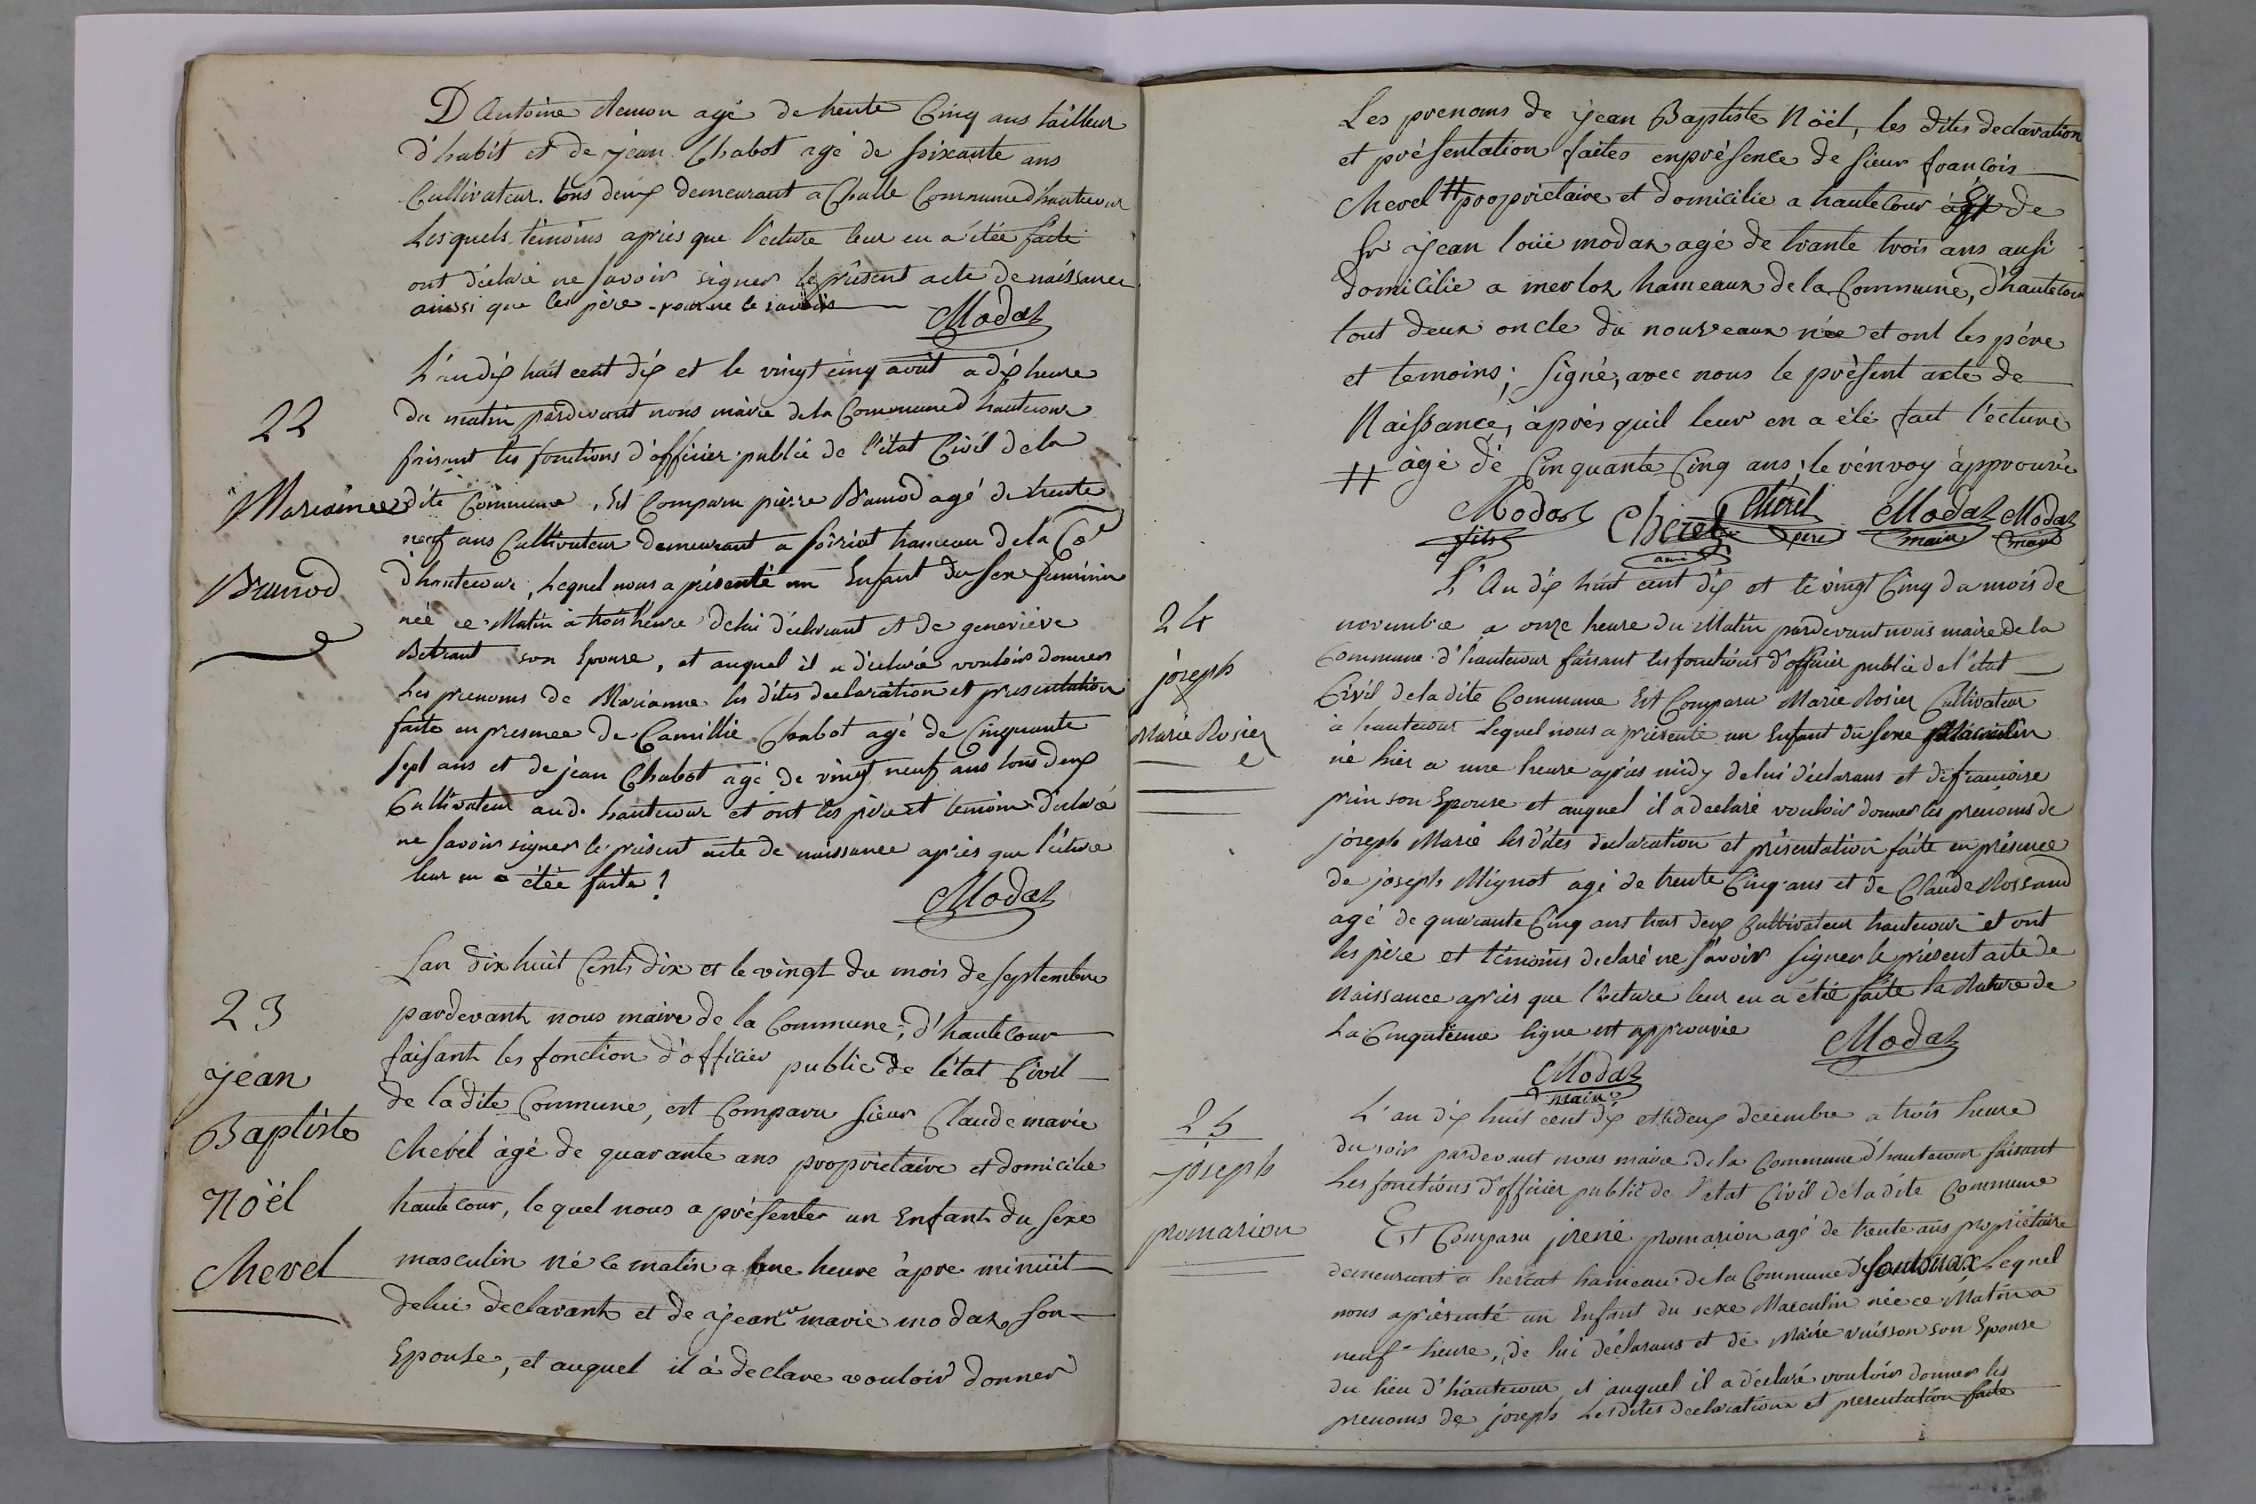 D Antoine Remon agé de trente Cinq ans tailleur
d'habit et de jean Chabot agé de soixante ans
Cultivateur tous deux demeurant a Challe Commune d'hautecour
Lesquels témoins aprés que lecture leur en a étée faite
ont déclaré ne savoir signer le présent acte de naissance
ainssi que les père pour ne le savoir
Modas
22
Marianne
Brunod
L'an dix huit cent dix et le vingt cinq août a dix heure
du matin pardevant nous maire de la Commune d'hautecour
faisant les fonctions d'officier public de l'état Civil de la
dite Commune, Est Comparu pierre Brunod agé de trente
neuf ans Cultivateur demeurant a Soiriat hameau de la Coe
d'hautecour, Lequel nous a présenté un Enfant du sexe feminin
née ce Matin à trois heure de lui déclarant et de genevieve
Betrant son Epouse, et auquel il a déclarée vouloir donner
Les prenoms de Marianne les dites declaration et presentation
faite en presence de Camillie Chabot agé de Cinquante
sept ans et de jean Chabot agé de vingt neuf ans tous deux
Cultivateur aud. hautecour et ont les père et temoin déclaré
ne savoir signer le présent acte de naissance aprés que lecture
leur en a étée faite !
Modas
23
jean
Baptiste
Noël
Chevel
Lan dix huit Cents dix et le vingt du mois de septembre
pardevant nous maire de la Commune, d'hautecour
faisant les fonction d'officier public de létat Civil
de la dite Commune, est Comparu sieur Claude marie
Chevel àgé de quarante ans proprietaire et domicilie
hautecour, lequel nous a présenter un Enfant du sexe
masculin né ce matin a une heure àpre minuit
delui declarant et de jeanne marie modas son
Epouse, et auquel il à declare vouloir donner
Les prenoms de jean Baptiste Noël, les dites declaration
et présentation faites enprésence de sieur francois
Chevel # proprietaire et domicilie a hautecour agé Et de
Sr jean loüi modas agé de trante trois ans ausi
domicilie a merloz hameaux de la Commune, d'hautecour
tout deux oncle du nouveaux née et ont les pére
et temoins; signé, avec nous le présent acte de
Naissance, àprés quil leur en a été fait l'ecture
# àgé dé Cinquante Cinq ans; le rénvoy àpprouvée
Modas fils Chevel ami Chevel pere Modas maire Modas maire
24
joseph
Marie Rosier
L'An dix huit cent dix et le vingt Cinq du mois de
novembre a onze heure du Matin pardevant nous maire de la
Commune d'hautecour faisant les fonctions d'officier public de l'état
Civil de la dite Commune Est Comparu Marie Rosier Cultivateur
à hautecour Lequel nous a présenté un Enfant du sexe Masculin
né hier a une heure aprés midy de lui déclarans et de francoise
prin son Epouse et auquel il a declaré vouloir donner les prenoms de
joseph Marie les dites declaration et présentation faite en présence
de joseph Mignot agé de trente Cinq ans et de Claude Rossand
agé de quarante Cinq ans tous deux Cultivateur hautecour et ont
les père et témoins declaré ne savoir signer le présent acte de
Naissance aprés que lecture leur en a étée faite la Rature de
La Cinquieme ligne est approuvée
Modas
Modas
maire
25
joseph
promarion
L'an dix huit cent dix et le deux décembre a trois heure
du soir pardevant nous maire de la Commune d'hautecour faisant
Les fonctions d'officier public de l'etat Civil de la dite Commune
Est Comparu jrené promarion agé de trente ans propriétaire
demeurant a hameau de la Commune de Lequel
nous a présenté un Enfant du sexe Masculin née ce Matin a
neuf heure, de lui déclarans et de Marie vuisson son Epouse
du lieu d'hautecour et auquel il a déclaré vouloir donner les
prenoms de joseph Les dites declaration et presentation faite